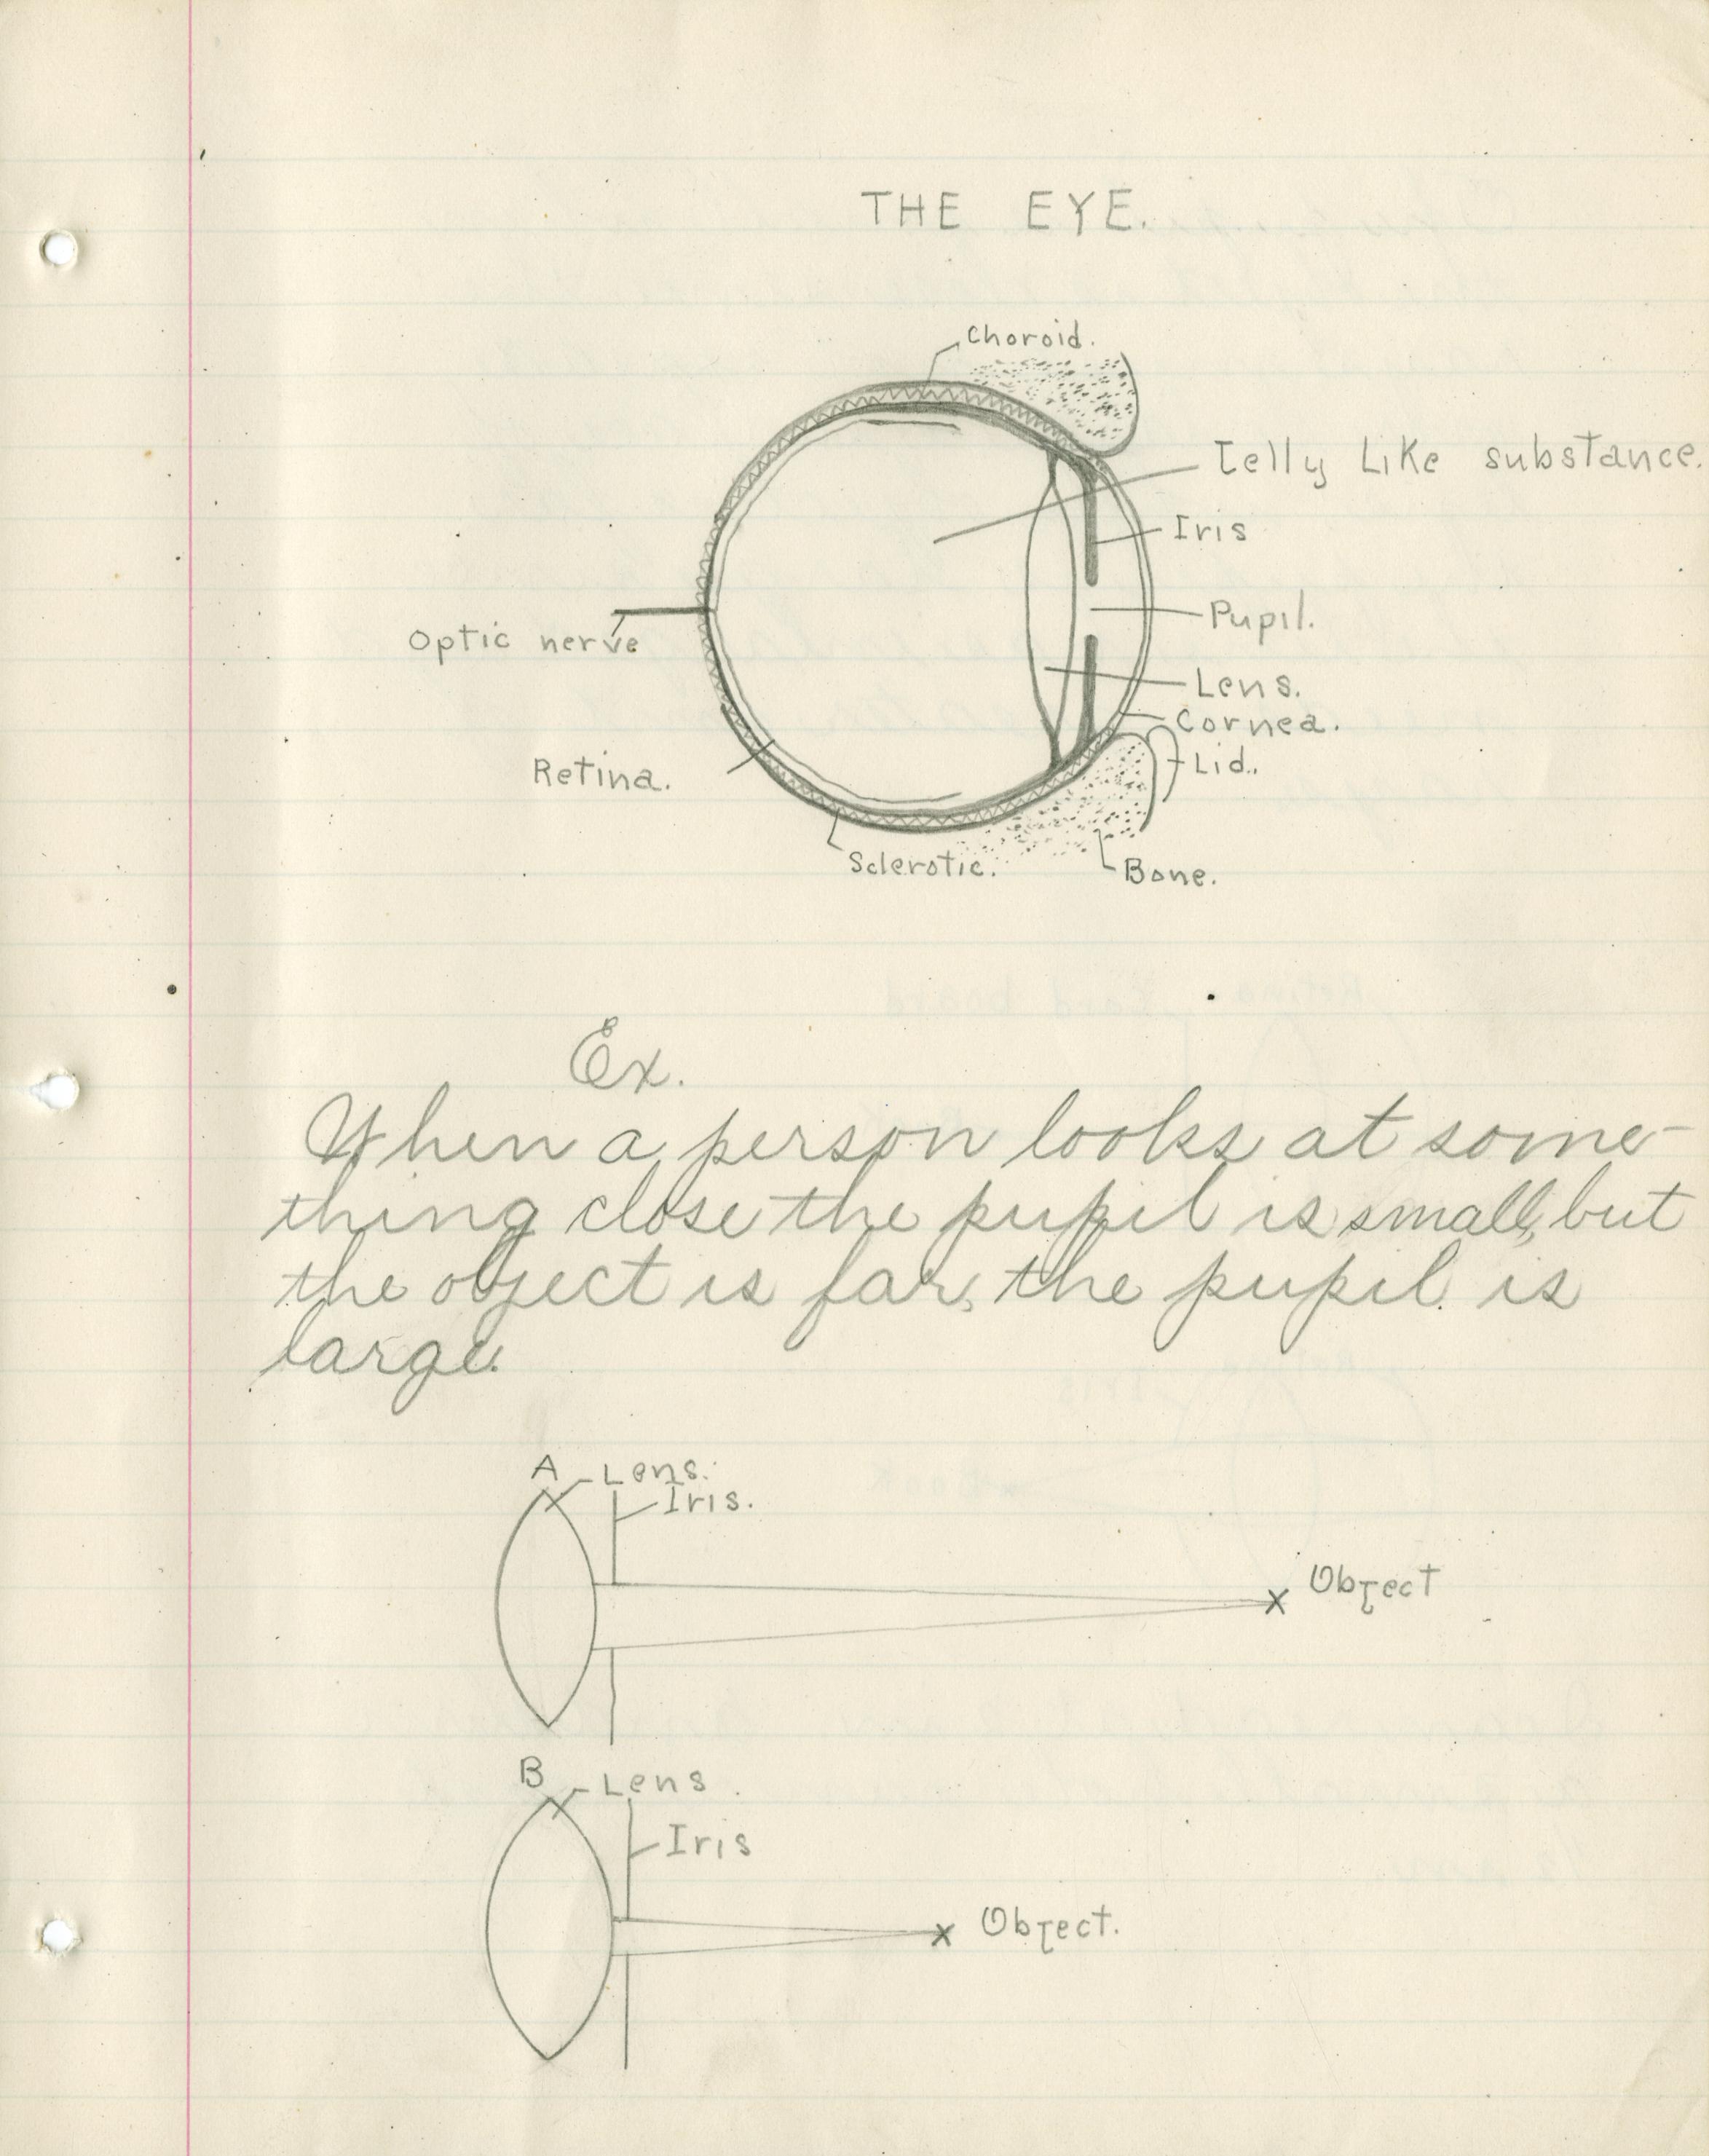 THE EYE.
Choroid.
Jelly Like substance.
Iris
Pupil.
Optic nerve
Lens.
Cornea.
Lid.
Retina.
Sclerotic.
Bone.
Ex.
When a person looks at some-
thing close the pupil is small, but
the object is far, the pupil is
large.
A Lens.
Iris.
Object
B Lens.
Iris
Object.